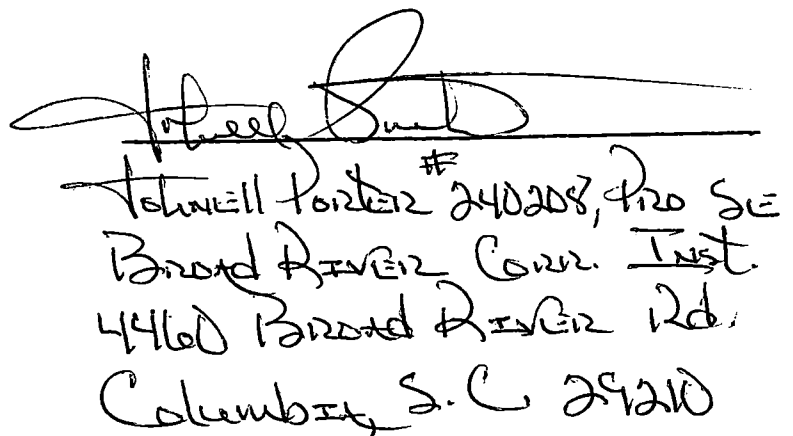 Johnell Porter #240208, Pro Se
Broad River Corr. Inst.
4460 Broad River Rd.
Columbia, S.C. 29210